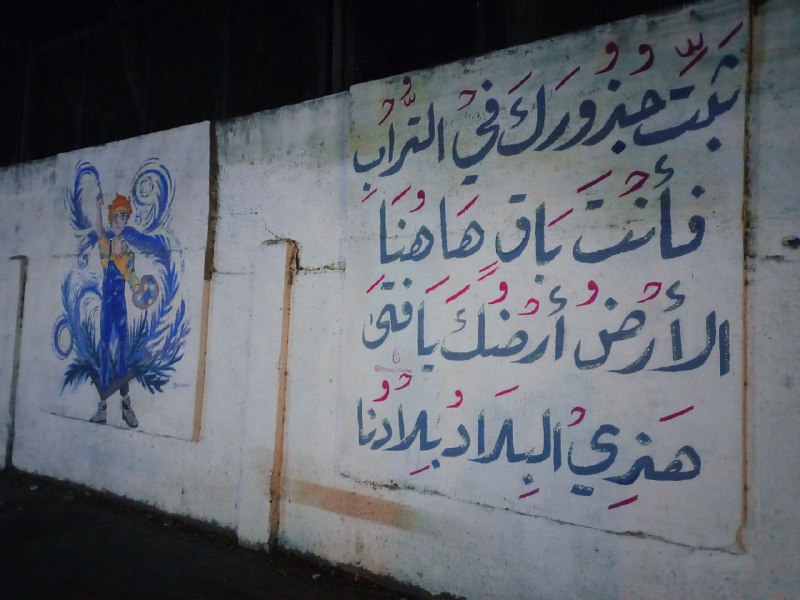 ثَبِّتْ جُذُورَكَ فِيْ التُّرَابِ
فَأَنْتَ بَاقٍ هَاهُنَا
الأَرْضُ أَرْضُكَ يَا فَتَىً
هَذِيْ البِلَادُ بِلِادُنَا